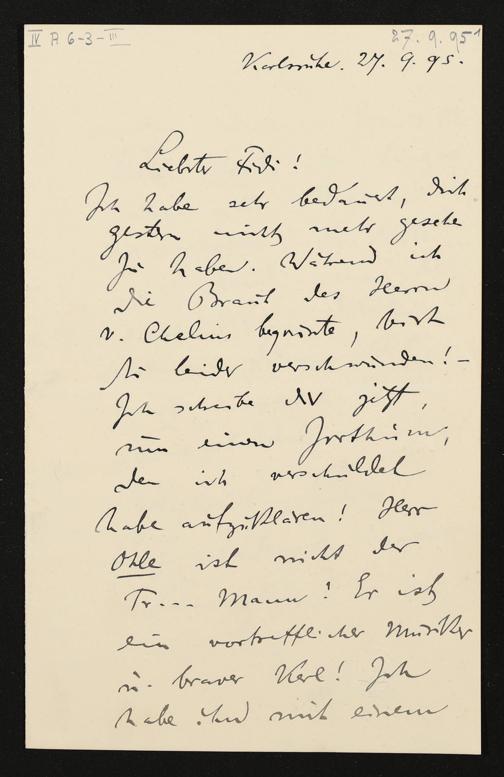 IV A 6-3-III
27.9.95
Karlsruhe. 27. 9. 95.
Liebster Fidi!
Ich habe sehr bedauert, dich
gestern nicht mehr gesehen
zu haben. Während ich
die Braut des Herrn
v. Chelius begrüsste, warst
du leider verschwunden! –
Ich schreibe dir jetzt,
um einen Irrthum,
den ich verschuldet
habe aufzuklären! Herr
Ohle ist nicht der
Tr... Mann! Er ist
ein vortrefflicher Musiker
u. braver Kerl! Ich
habe ihn mit einem